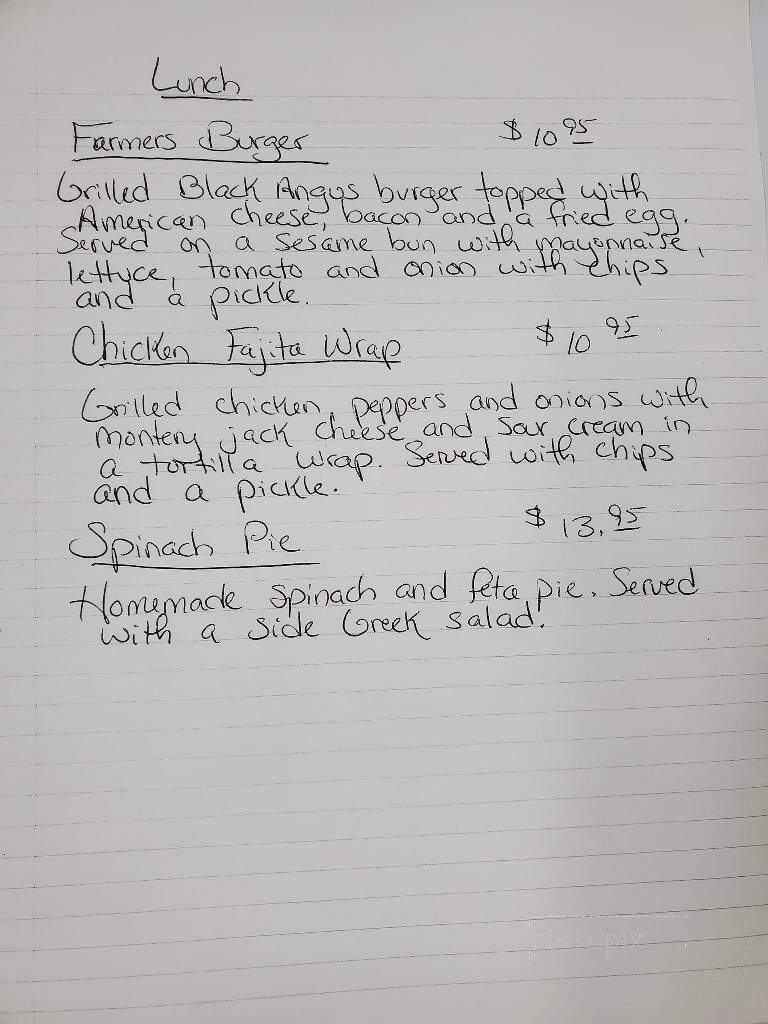 Lunch
Farmers Burger $10 95
Grilled Black Angus burger topped with
American cheese, bacon and a fried egg.
Served on a sesame bun with mayonnaise,
lettuce, tomato and onion with chips
and a pickle.
Chicken Fajita Wrap $10 95
Grilled chicken, peppers and onions with
montery jack cheese and sour cream in
a tortilla wrap. Served with chips
and a pickle.
Spinach Pie $13.95
Homemade spinach and feta pie. Served
with a side Greek salad!